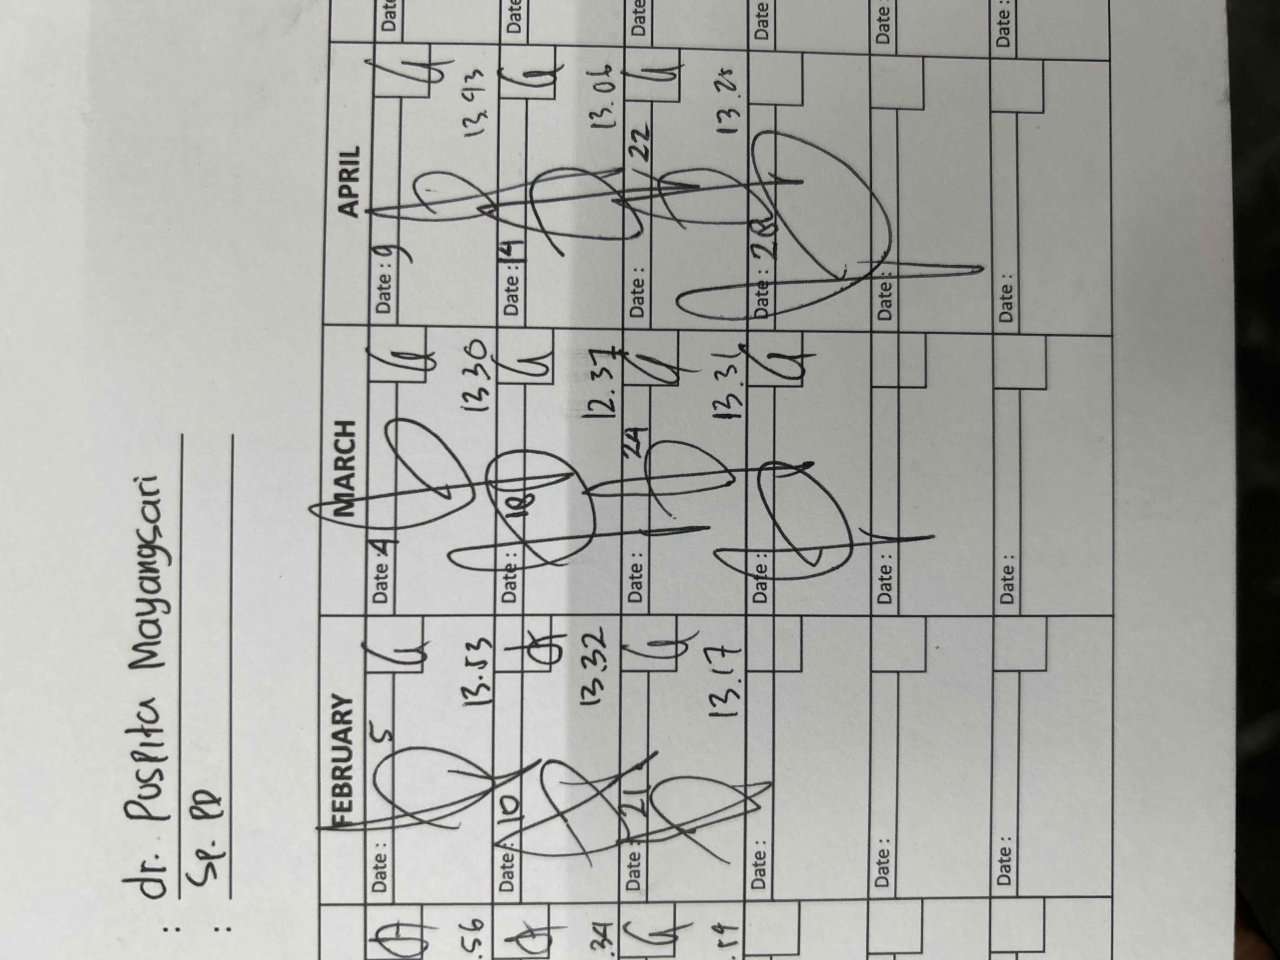 : dr. Puspita Mayangsari
: Sp. PD
FEBRUARY MARCH APRIL
Date : 5 Date : 4 Date : 9 Date
.56 13.53 13.30 13.43
Date : 10 Date : 18 Date : 14 Date
.34 13.32 12.37 13.06
Date : 21 Date : 24 Date : 22 Date
.54 13.17 13.31 13.28
Date : Date : Date : 28 Date
Date : Date : Date : Date :
Date : Date : Date : Date :